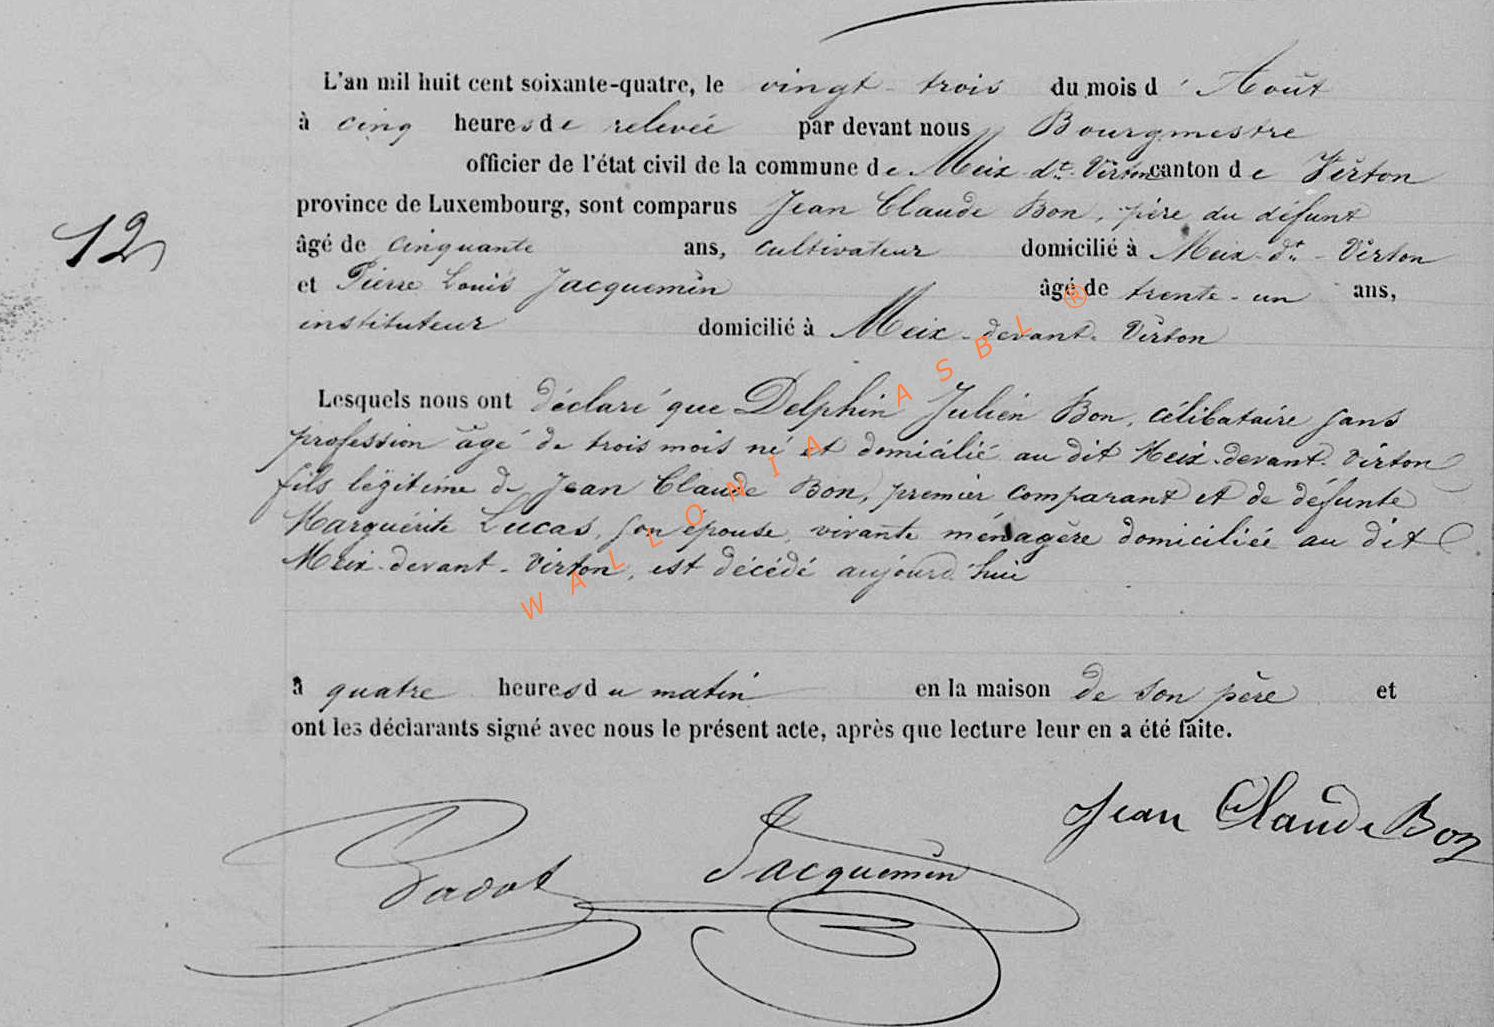 L'an mil huit cent soixante-quatre, le vingt-trois du mois d'Août
à cinq heures de relevée par devant nous Bourgmestre
officier de l'état civil de la commune de Meix-dt-Virton canton de Virton
province de Luxembourg, sont comparus Jean Claude Bon, père du défunt
12
âgé de cinquante ans, cultivateur domicilié à Meix-dt-Virton
et Pierre Louis Jacquemin âgé de trente-un ans,
instituteur domicilié à Meix-devant-Virton
Lesquels nous ont déclaré que Delphin Julien Bon, célibataire sans
profession âgé de trois mois né et domicilié au dit Meix-devant-Virton
fils légitime de Jean Claude Bon, premier comparant et de défunte
Marguerite Lucas, son épouse, vivante ménagère domiciliée au dit
Meix-devant-Virton, est décédé aujourd'hui
WALLONIA ASBL ®
à quatre heures du matin en la maison de son père et
ont les déclarants signé avec nous le présent acte, après que lecture leur en a été faite.
Jean Claude Bon
Jacquemin